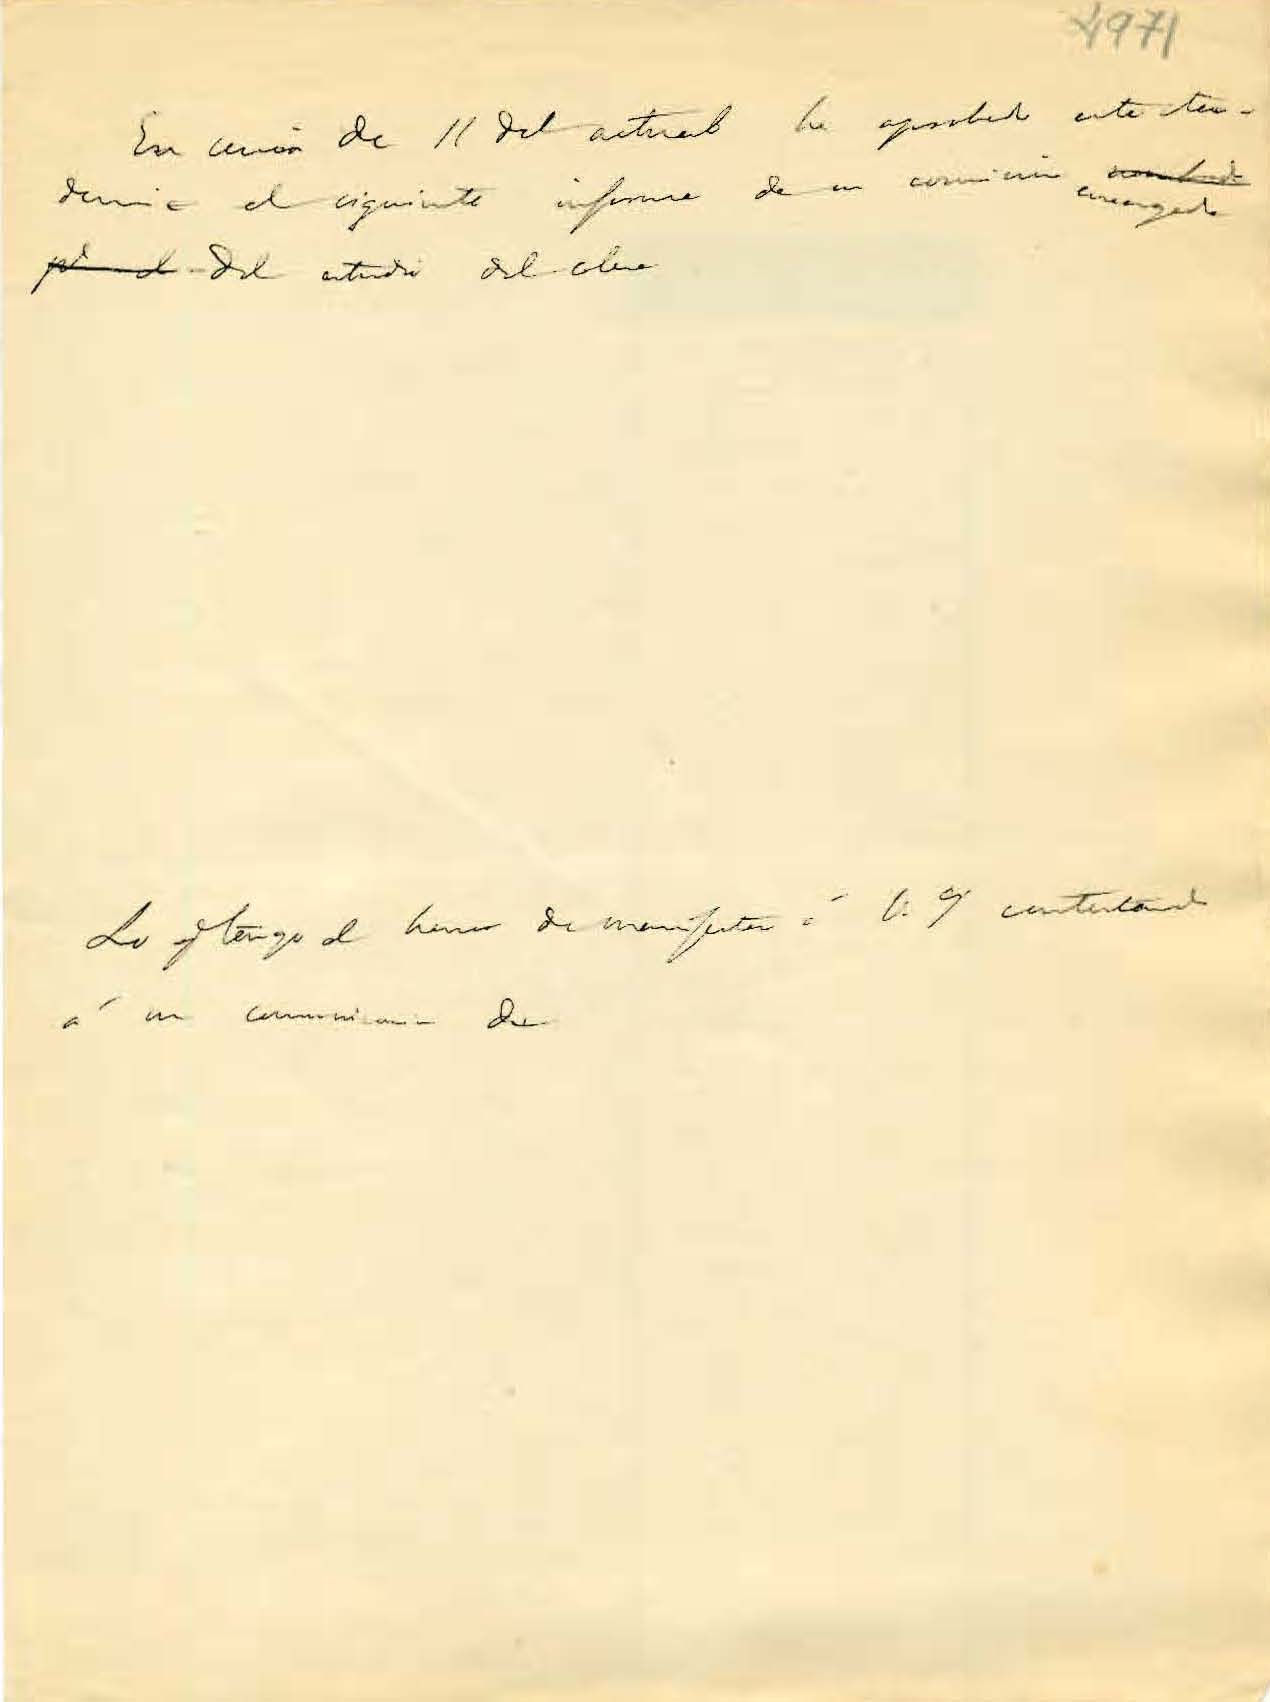 4971
En sesión de 11 del actual ha aprobado esta Aca-
demia el siguiente informe de su comisión nombrada
encargada
para el del estudio del cólera
Lo q tengo el honor de manifestar á V. contestando
á su comunicación de